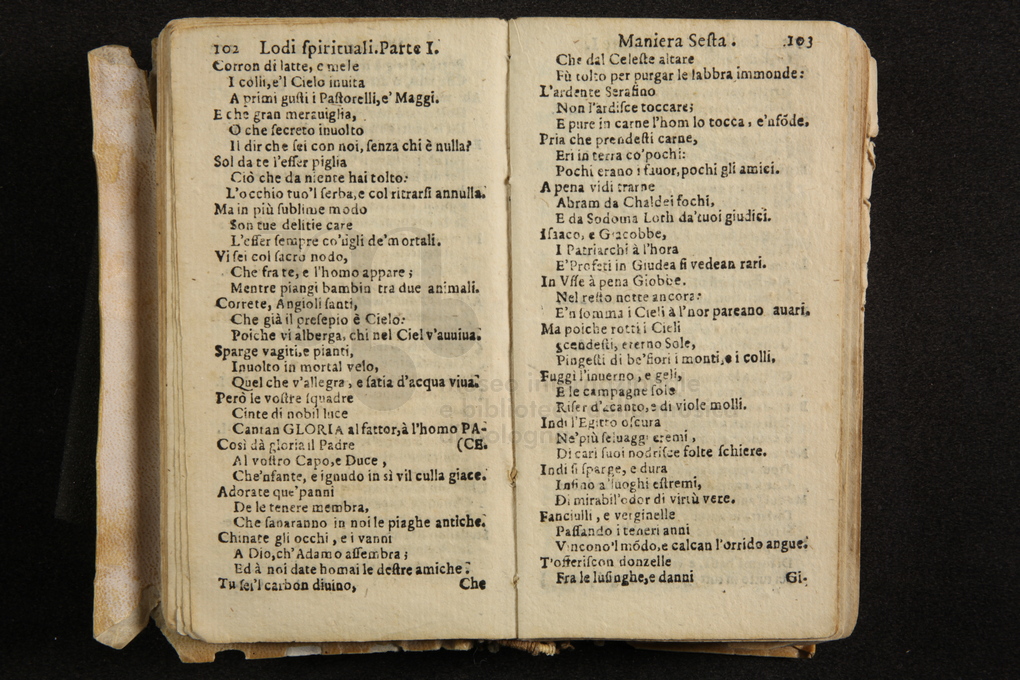 102 Lodi ſpirituali.Parte I.
Corron di latte, e mele
I colli,e'l Cielo inuita
A primi guſti i Paſtorelli,e' Maggi.
E che gran merauiglia,
O che ſecreto inuolto
Il dir che ſei con noi, ſenza chi è nulla?
Sol da te l'eſſer piglia
Ciò che da niente hai tolto:
L'occhio tuo'l ſerba,e col ritrarſi annulla.
Ma in più ſublime modo
Son tue delitie care
L'eſſer ſempre co'figli de'mortali.
Vi ſei col ſacro nodo,
Che fra te, e l'homo appare;
Mentre piangi bambin tra due animali.
Correte, Angioli ſanti,
Che già il preſepio è Cielo:
Poiche vi alberga, chi nel Ciel v'auuiua.
Sparge vagiti,e pianti,
Inuolto in mortal velo,
Quel che v'allegra, e ſatia d'acqua viua.
Però le voſtre ſquadre
Cinte di nobil luce
Cantan GLORIA al fattor,à l'homo PA-
Così dà gloria il Padre (CE.
Al voſtro Capo,e Duce,
Che'nfante, e ignudo in sì vil culla giace.
Adorate que'panni
De le tenere membra,
Che ſanaranno in noi le piaghe antiche.
Chinate gli occhi, e i vanni
A Dio,ch'Adamo aſſembra;
Ed à noi date homai le deſtre amiche.
Tu ſei'l carbon diuino, Che
Maniera Seſta. 103
Che dal Celeſte altare
Fù tolto per purgar le labbra immonde:
L'ardente Serafino
Non l'ardiſce toccare;
E pure in carne l'hom lo tocca, e'nfōde.
Pria che prendeſti carne,
Eri in terra co'pochi:
Pochi erano i fauor,pochi gli amici.
A pena vidi trarne
Abram da Chaldei fochi,
E da Sodoma Loth da'tuoi giudici.
Iſaaco, e Giacobbe,
I Patriarchi à l'hora
E'Profeti in Giudea ſi vedean rari.
In Vſſe à pena Giobbe.
Nel reſto notte ancora:
E'n ſomma i Cieli à l'hor pareano auari.
Ma poiche rotti i Cieli
ſcendeſti, eterno Sole,
Pingeſti di be'fiori i monti,e i colli,
Fuggì l'inuerno, e geli,
E le campagne ſole
Riſer d'acanto,e di viole molli.
Indi l'Egitto oſcura
Ne'più ſeluaggi eremi,
Di cari ſuoi nodriſce folte ſchiere.
Indi ſi ſparge, e dura
Inſino a'luoghi eſtremi,
Di mirabil'odor di virtù vere.
Fanciulli, e verginelle
Paſſando i teneri anni
Vincono'l mōdo,e calcan l'orrido angue.
T'offeriſcon donzelle
Fra le luſinghe,e danni Gi-